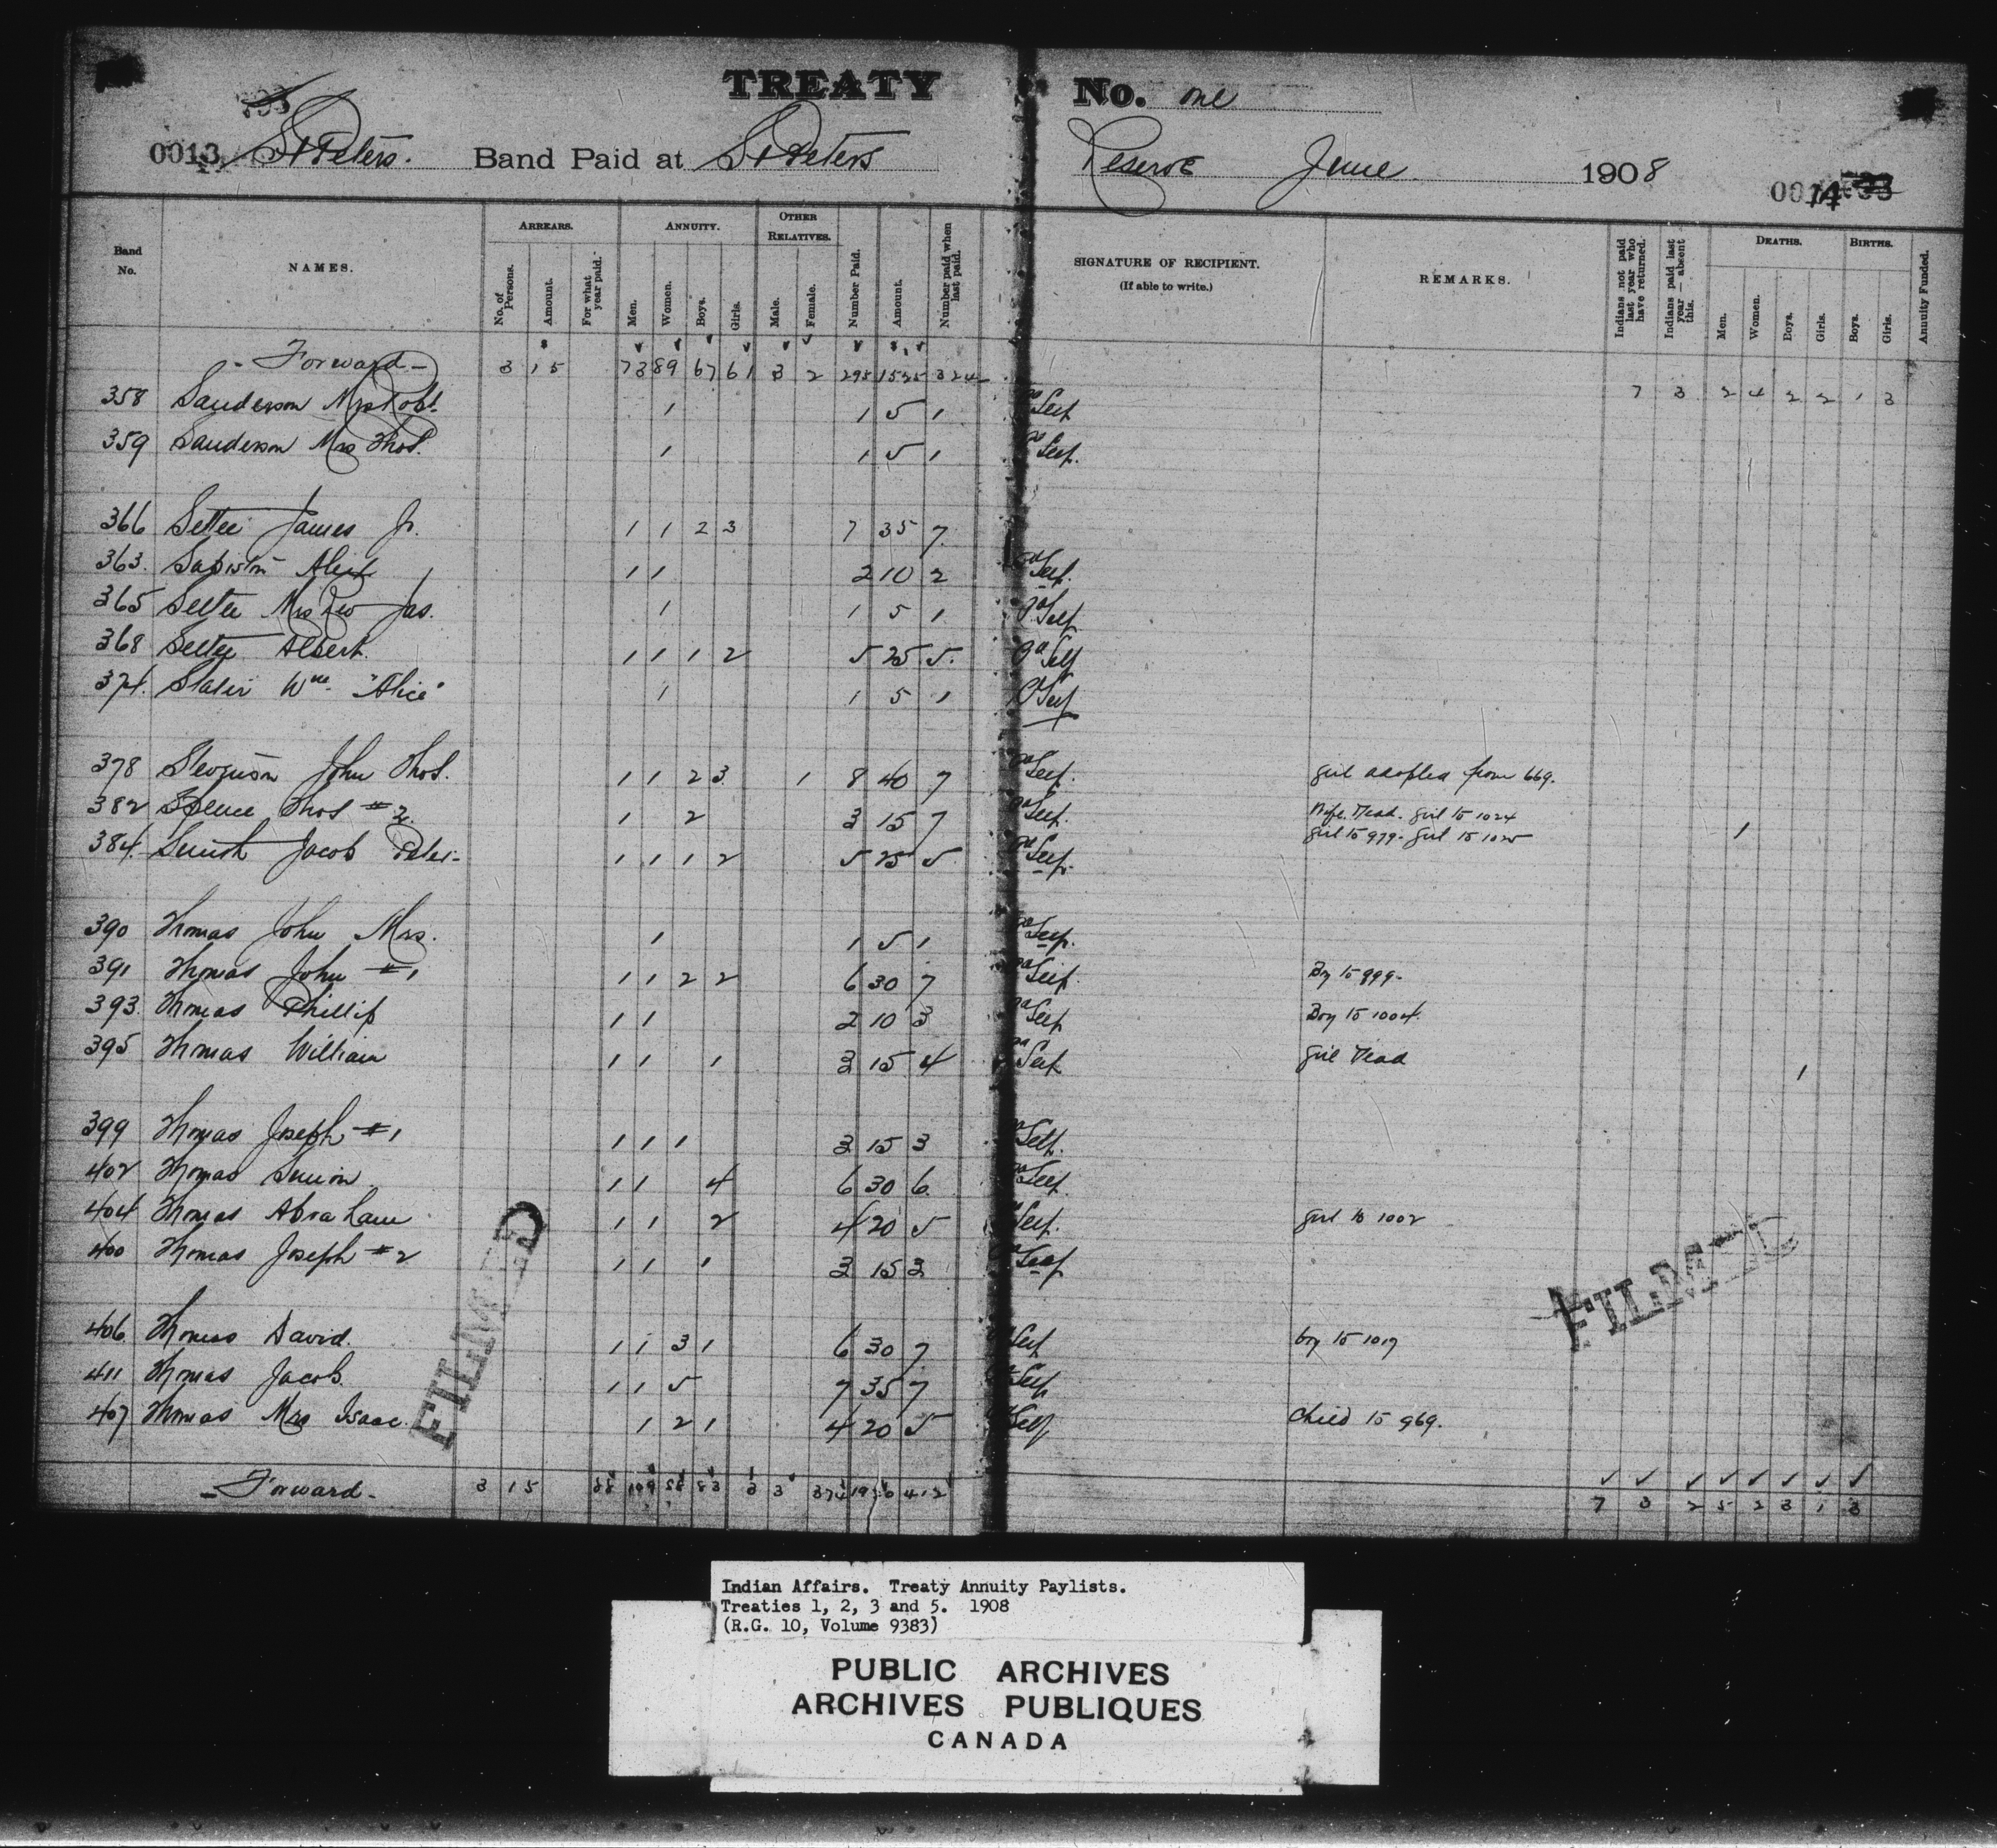 TREATY No. one
0013 St Peters. Band Paid at St Peters Reserve June 1908 0014
Band No. NAMES. ARREARS. No. of Persons. Amount. For what year paid. ANNUITY. Men. Women. Boys. Girls. OTHER RELATIVES. Male. Female. Number Paid. Amount. Number paid when last paid. SIGNATURE OF RECIPIENT. (If able to write.) REMARKS. Indians not paid last year who have returned. Indians paid last year — absent this. DEATHS. Men. Women. Boys. Girls. BIRTHS. Boys. Girls. Annuity Funded.
- Forward - 3 15 73 89 67 61 3 2 295 1525 324 7 3 2 4 2 2 1 3
358 Sanderson Mrs Robt. 1 1 5 1 Self
359 Sanderson Mrs Thos. 1 1 5 1 Self.
366 Settee James Jr. 1 1 2 3 7 35 7
363. Alex 1 1 2 10 2 Self.
365 Settee Mrs Rev Jas. 1 1 5 1 Self
368 Settee Albert. 1 1 1 2 5 25 5. Self
374. Slater Wm. "Alice" 1 1 5 1 Self
378 John Thos. 1 1 2 3 1 8 40 7 Self. girl adopted from 669.
382 Spence Thos #2. 1 2 3 15 7 Self. Wife Dead. girl to 1024
girl to 979 - girl to 1025 1
384. Smith Jacob Peter- 1 1 1 2 5 25 5 Self.
390 Thomas John Mrs. 1 1 5 1 Self.
391 Thomas John #1 1 1 2 2 6 30 7 Self. Boy to 999-
393. Thomas Phillip 1 1 2 10 3 Self Boy to 1004.
395 Thomas William 1 1 1 3 15 4 Self girl Dead 1
399 Thomas Joseph #1 1 1 1 3 15 3 Self.
402 Thomas Simeon 1 1 4 6 30 6. Self
404 Thomas Abraham 1 1 2 4 20 5 Self. girl to 1002
400 Thomas Joseph #2 1 1 1 3 15 3 Self
406 Thomas David. 1 1 3 1 6 30 7. Self boy to 1017
411 Thomas Jacob. 1 1 5 7 35 7 Self
407 Thomas Mrs Isaac. 1 2 1 4 20 5 Self Child to 969.
FILMED
FILMED
- Forward - 3 15 88 109 88 83 3 3 374 1950 412 7 3 2 5 2 3 1 3
Indian Affairs. Treaty Annuity Paylists.
Treaties 1, 2, 3 and 5. 1908
(R.G. 10, Volume 9383)
PUBLIC ARCHIVES
ARCHIVES PUBLIQUES
CANADA